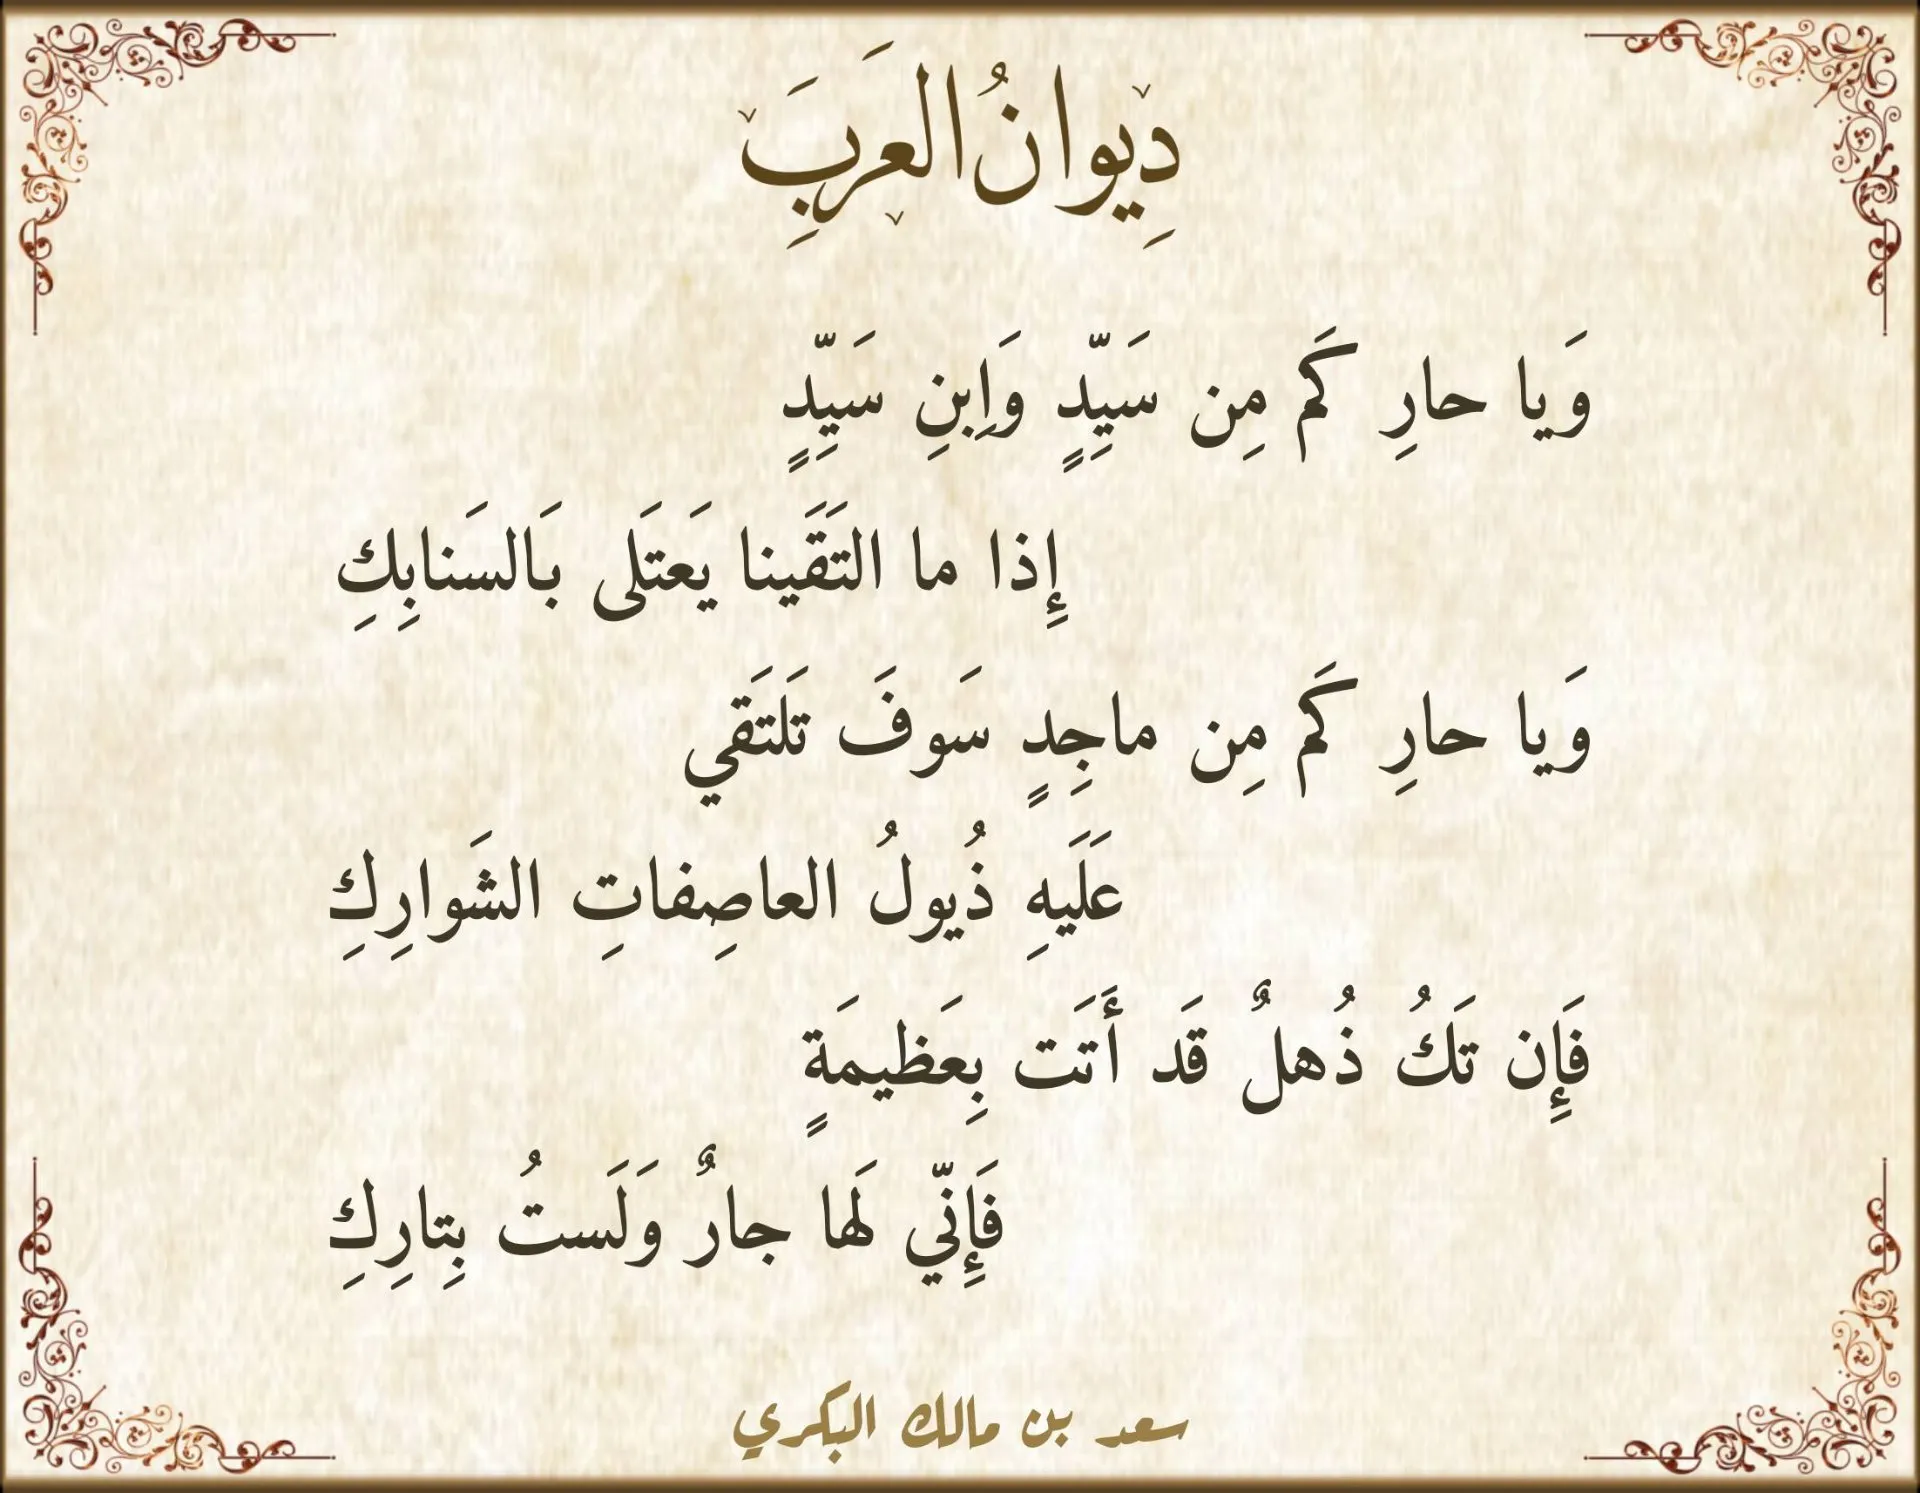 دِيوانُ العَرَبِ
وَيا حارِ كَم مِن سَيِّدٍ وَاِبنِ سَيِّدٍ
إِذا ما التَقَينا يَعتَلى بَالسَنابِكِ
وَيا حارِ كَم مِن ماجِدٍ سَوفَ تَلتَقي
عَلَيهِ ذُيولُ العاصِفاتِ الشَوارِكِ
فَإِن تَكُ ذُهلٌ قَد أَتَت بِعَظيمَةٍ
فَإِنّي لَها جارٌ وَلَستُ بِتارِكِ
سعد بن مالك البكري